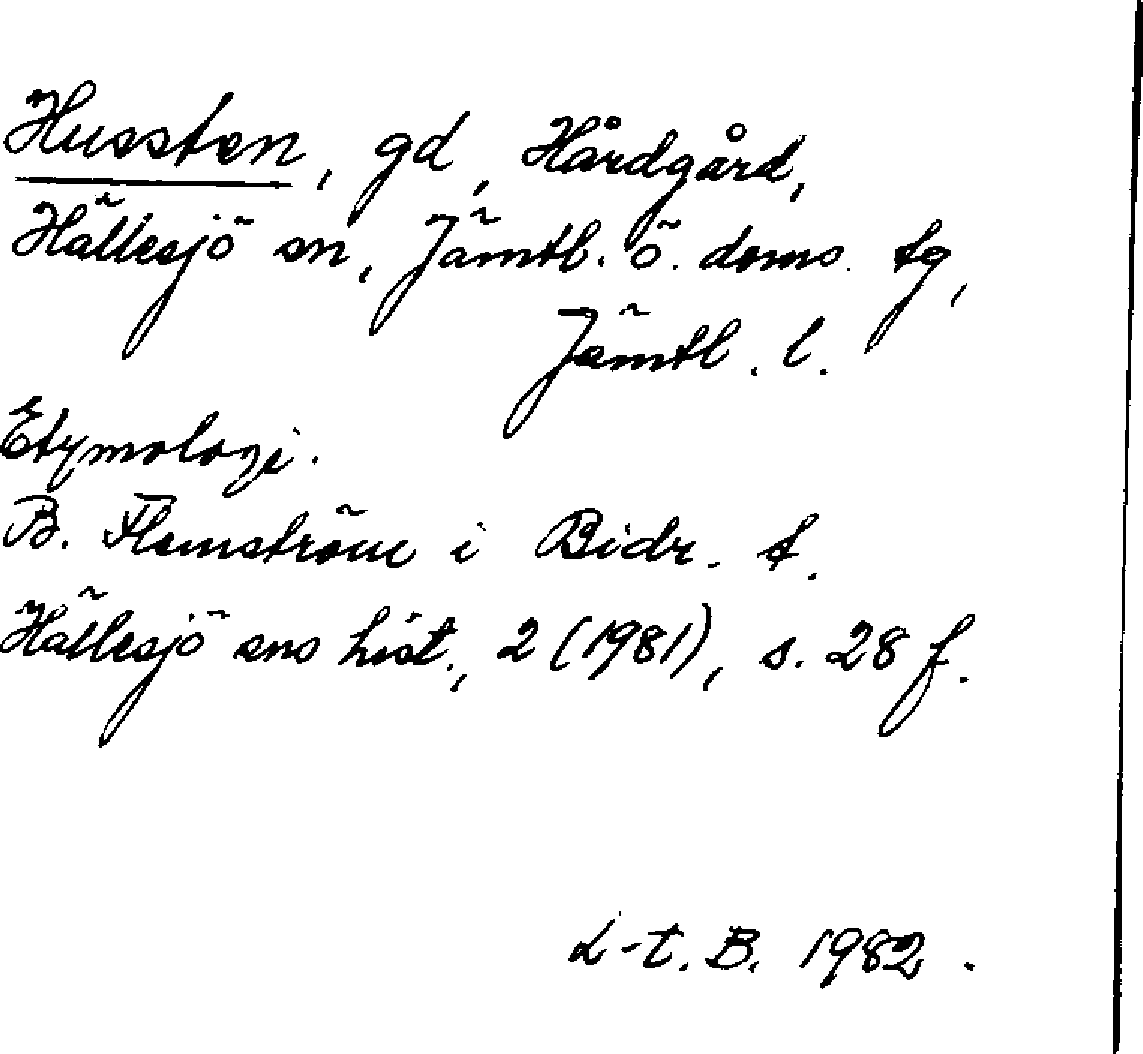 Hussten, gd, Hårdgård,
Hällesjö sn, Jämtl. ö. doms. tg,
Jämtl. l.
Etymologi.
B. Flemström i Bidr. t.
Hällesjö sns hist., 2 (1981), s. 28 f.
L-t. B. 1982.